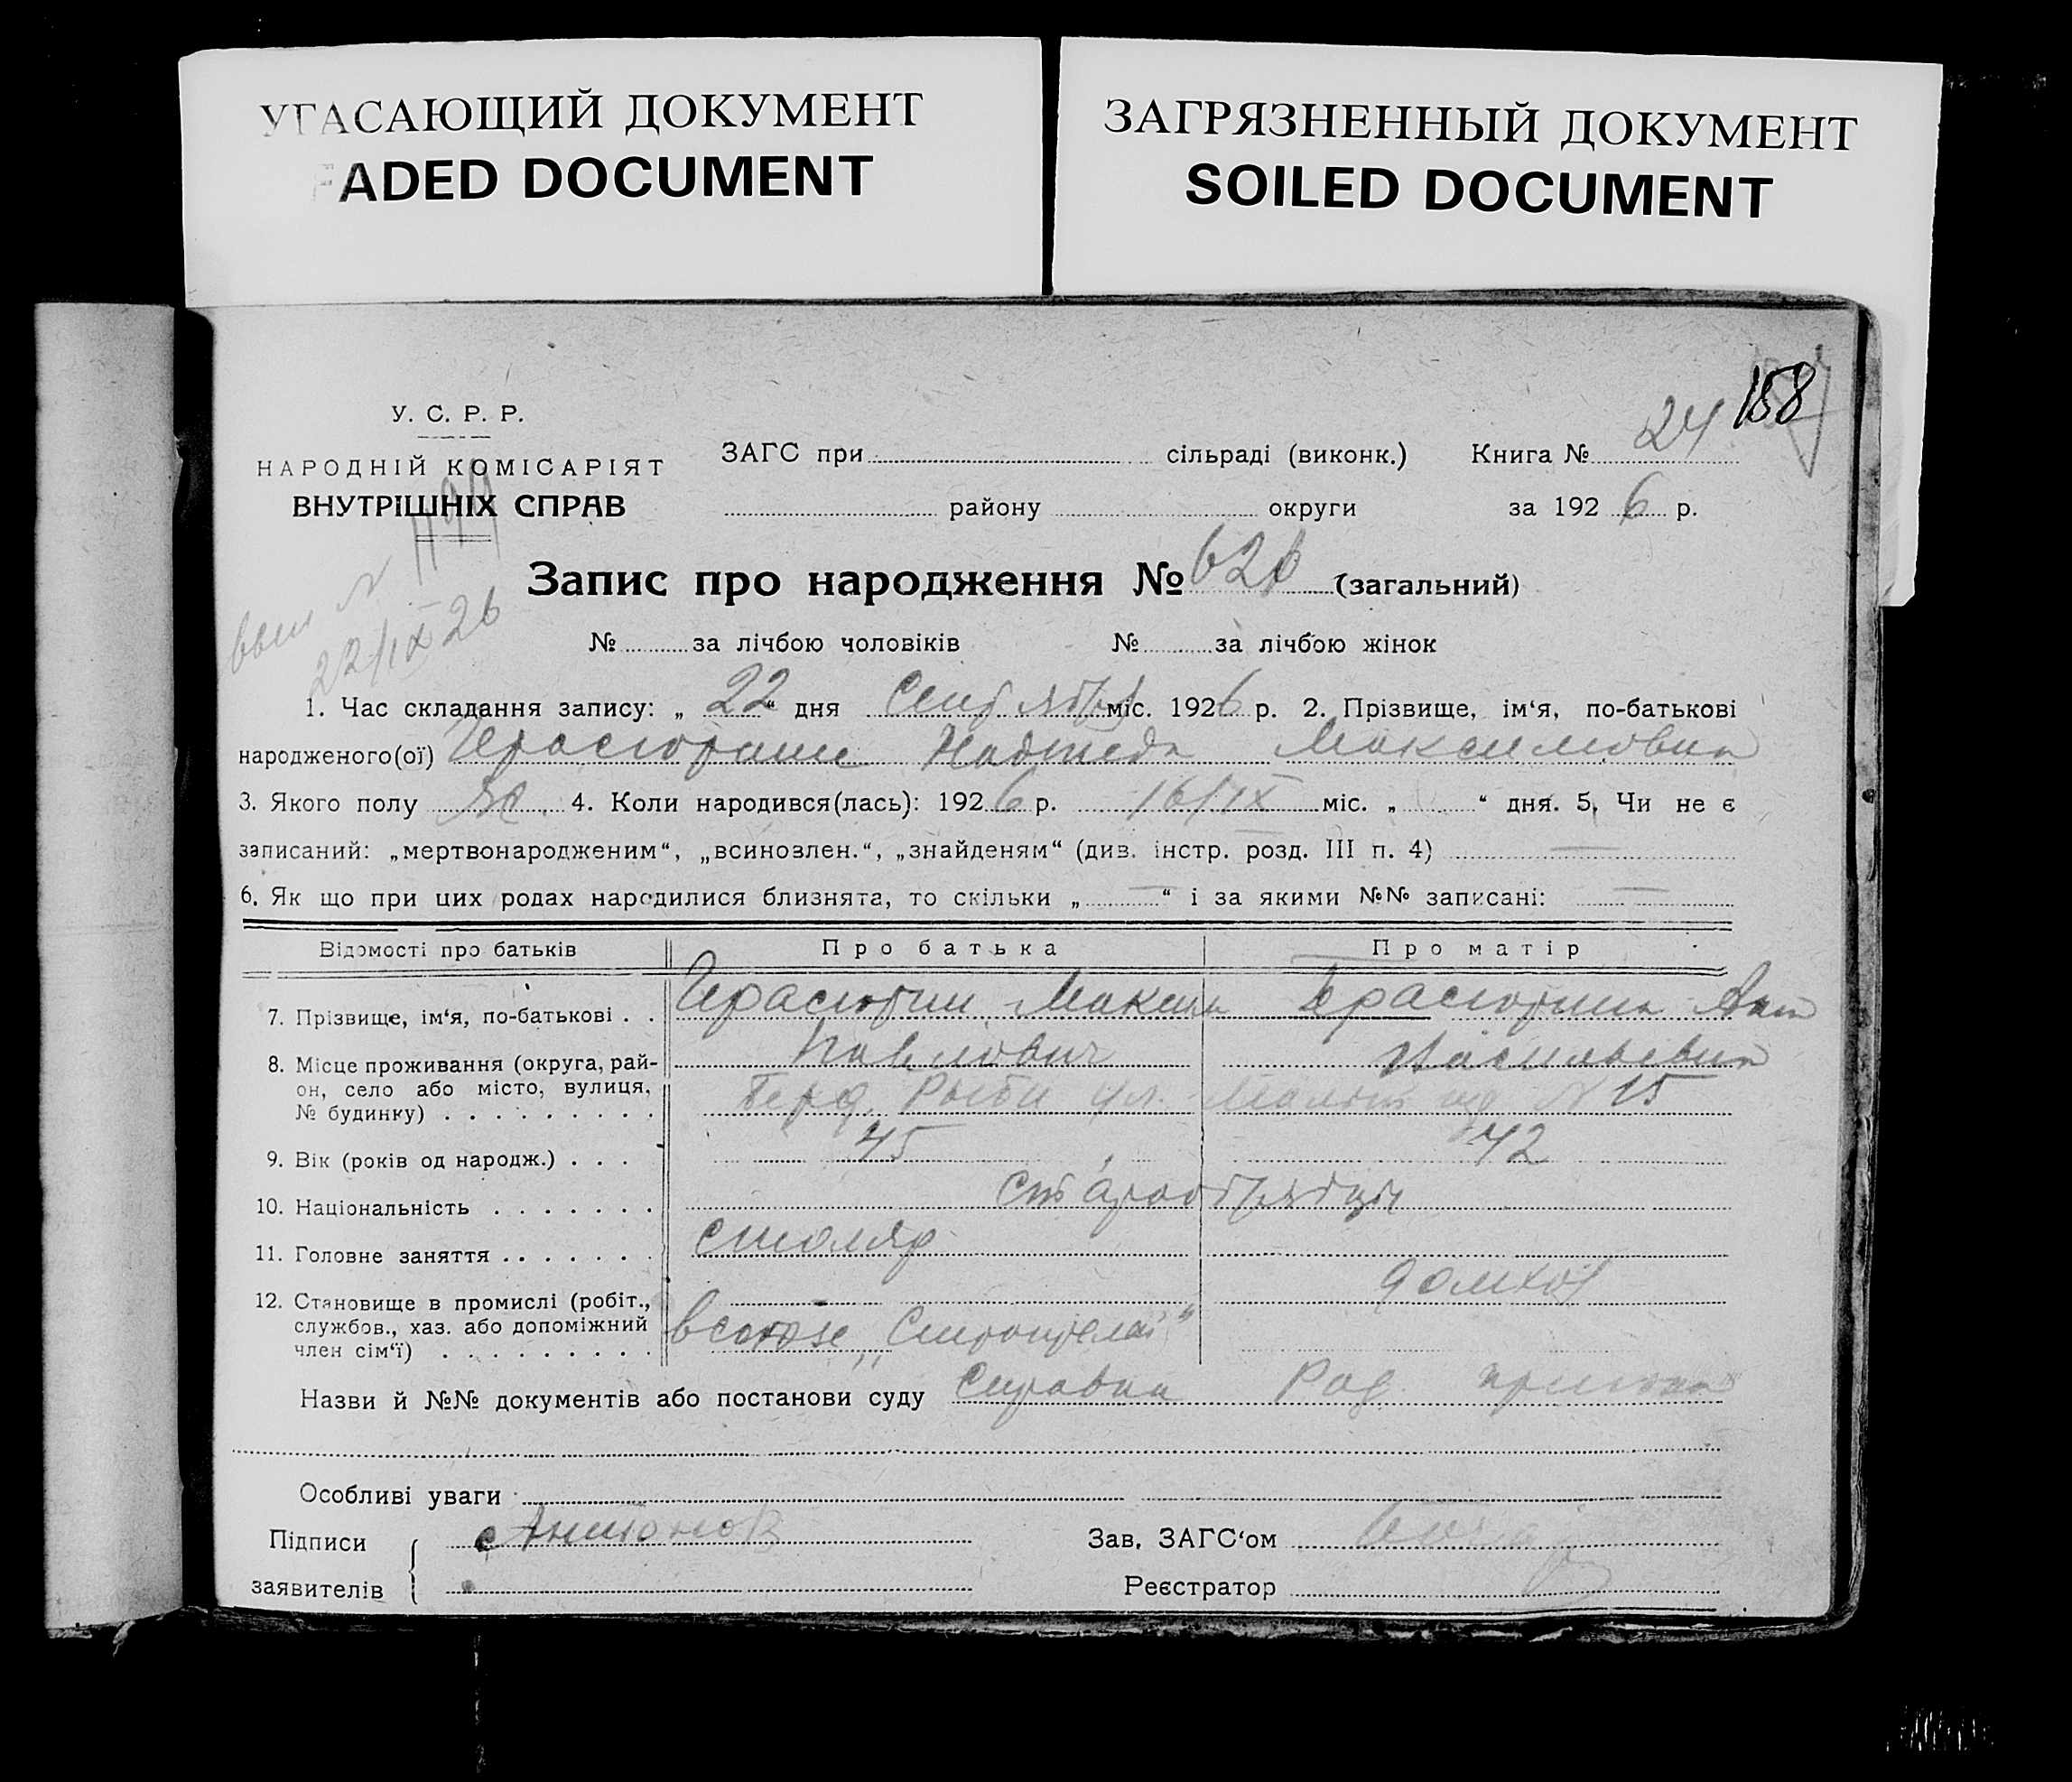 УГАСАЮЩИЙ ДОКУМЕНТ
FADED DOCUMENT
ЗАГРЯЗНЕННЫЙ ДОКУМЕНТ
SOILED DOCUMENT
158
24
У. С. Р. Р.
НАРОДНІЙ КОМІСАРІЯТ
ВНУТРІШНІХ СПРАВ
ЗАГС при сільраді (виконк.) Книга №
району округи за 1926 р.
Запис про народження № 626 (загальний)
22/IX 26
№ за лічбою чоловіків № за лічбою жінок
1. Час складання запису: „22“ дня Сентября міс. 1926 р. 2. Прізвище, ім‘я, по-батькові
народженого(ої) Надежда Максимовна
3. Якого полу 4. Коли народився(лась): 1926 р. 16/IX міс. „ “ дня. 5. Чи не є
записаний: „мертвонародженим“, „всиновлен.“, „знайденям“ (див. інстр. розд. III п. 4) —
6. Як що при цих родах народилися близнята, то скільки „—“ і за якими №№ записані: —
Відомості про батьків Про батька Про матір
7. Прізвище, ім‘я, по-батькові . . Максим
Павлович Васильевна
8. Місце проживання (округа, рай-
он, село або місто, вулиця,
№ будинку) . . . . . . . . . ул. № 15
9. Вік (років од народж.) . . . 45 42
10. Національність . . . . . . .
11. Головне заняття . . . . . . . столяр
домхоз
12. Становище в промислі (робіт.,
службов., хаз. або допоміжний
член сім‘ї) . . . . . . . . . в союзе „Строителей“
Назви й №№ документів або постанови суду Справка Род.
Особливі уваги
Підписи Антонов Зав. ЗАГС‘ом
заявителів Реєстратор